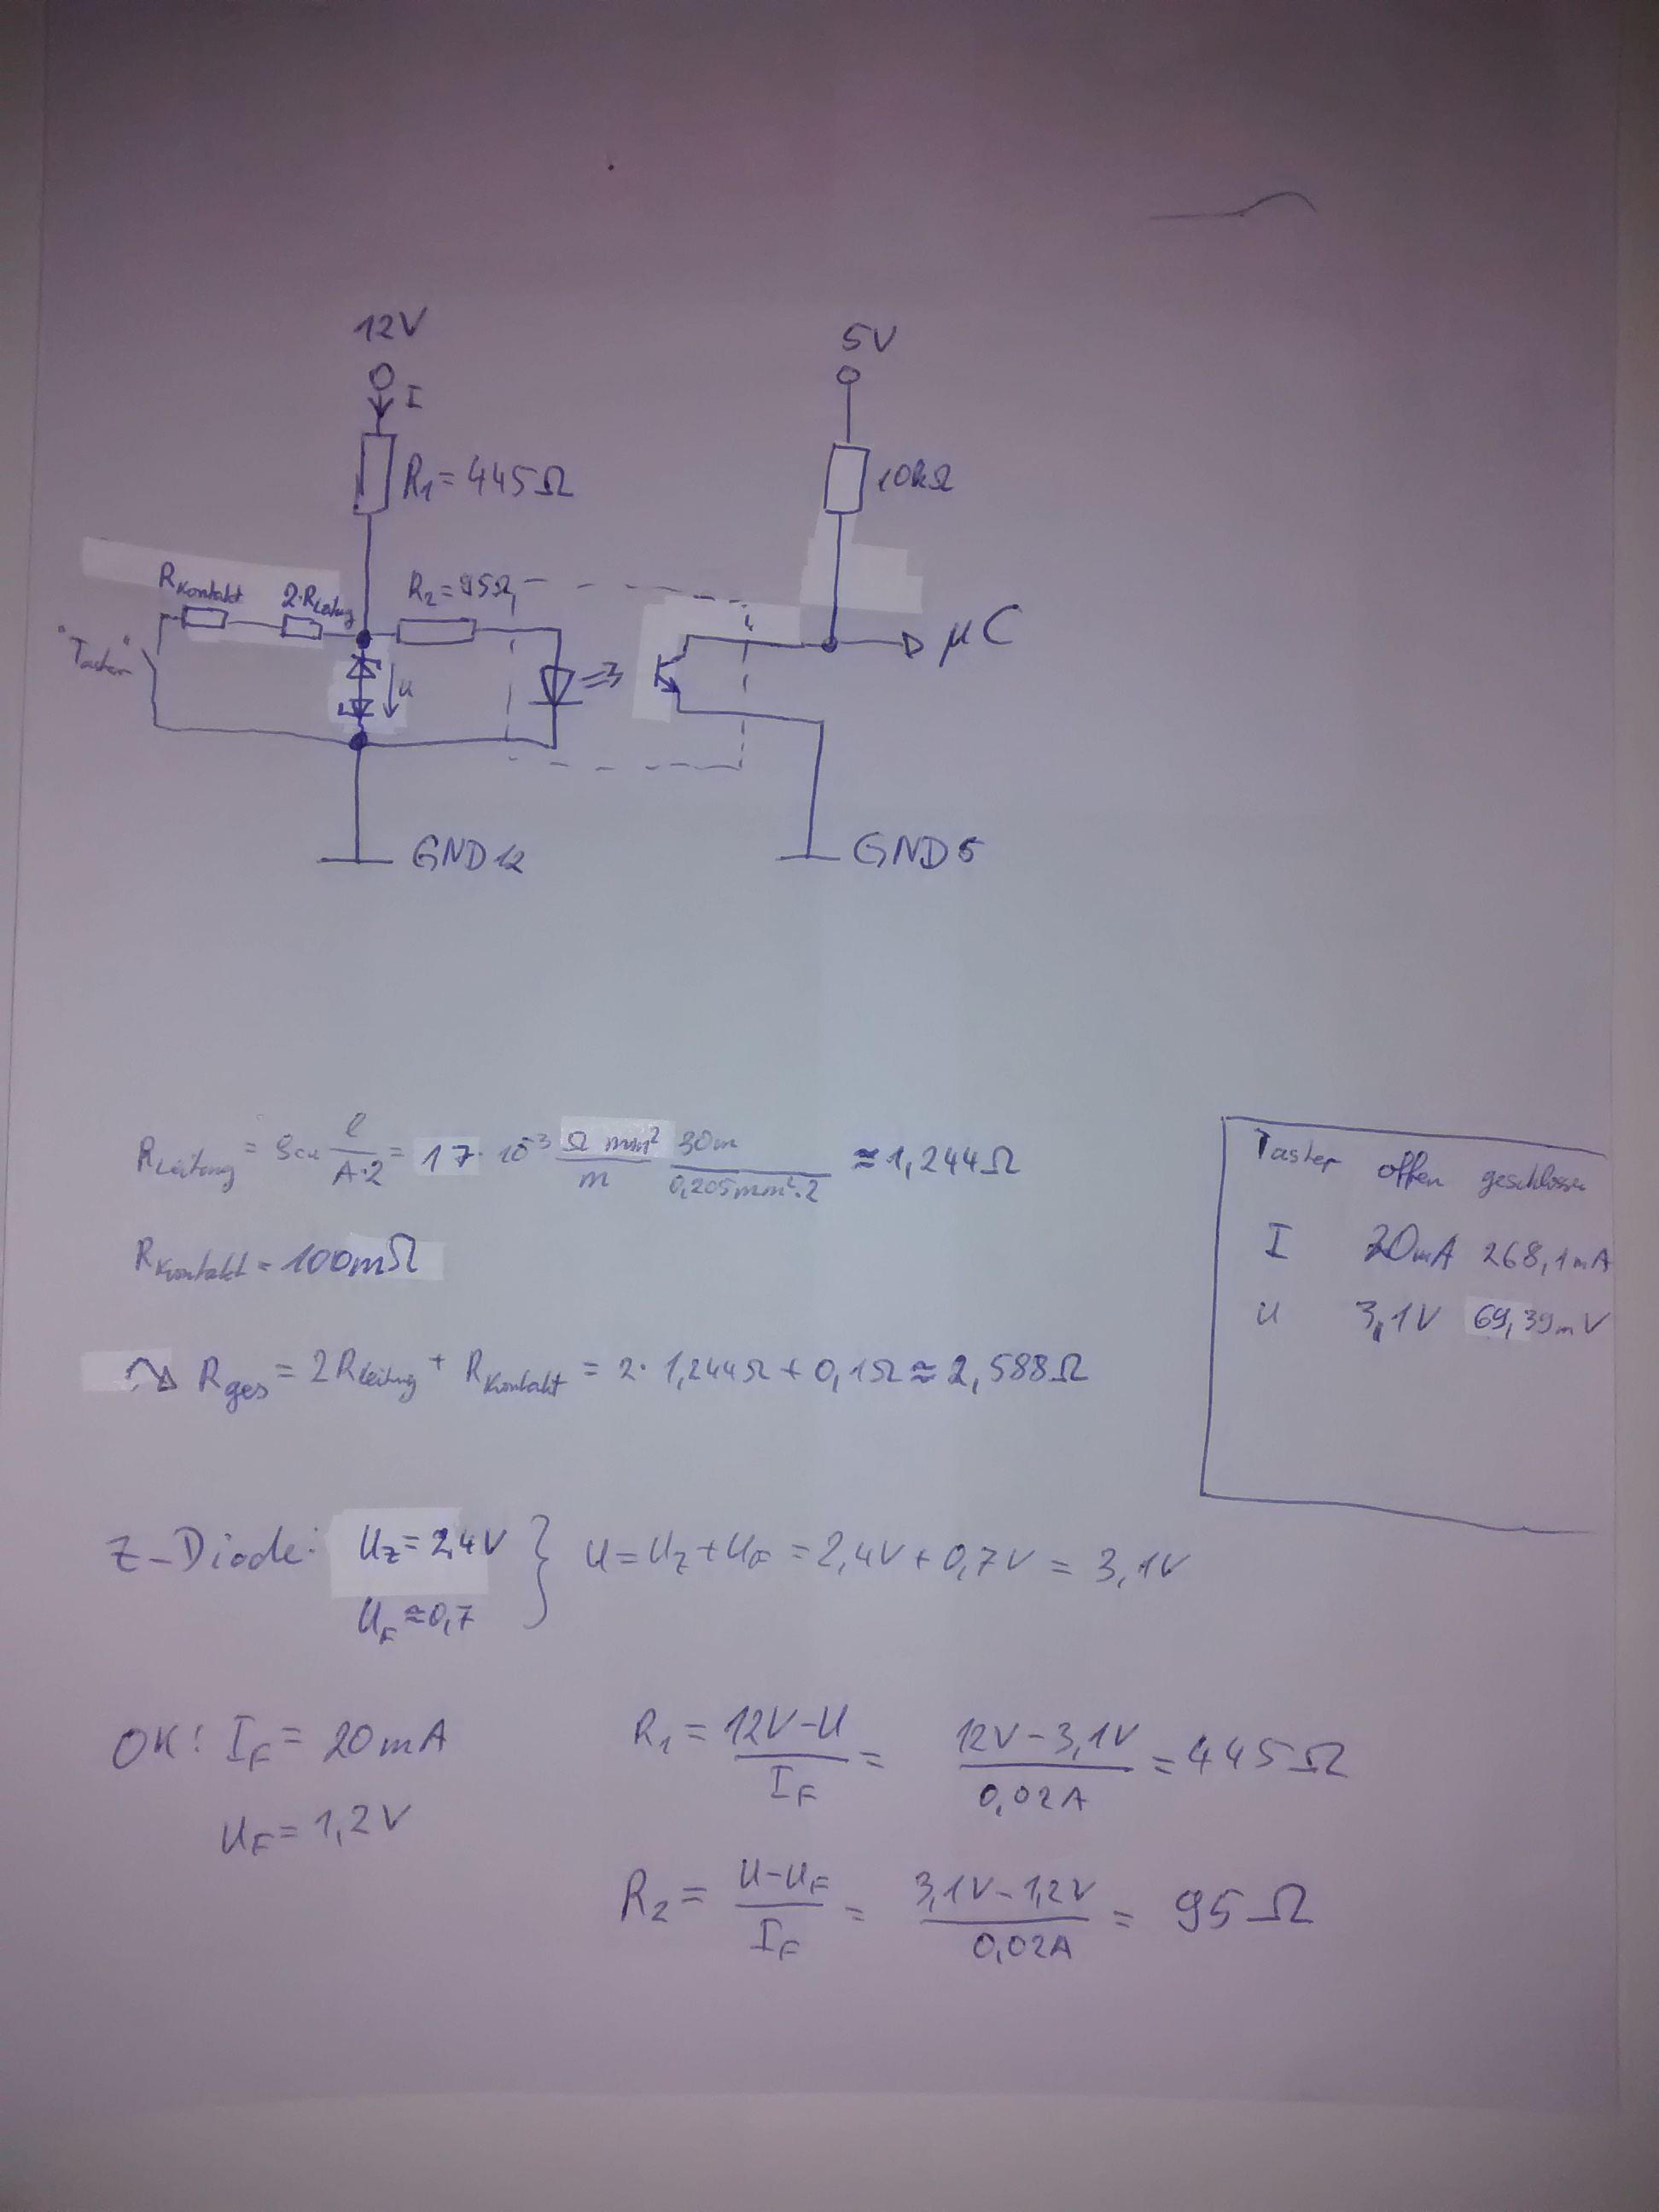 12V
5V
I
R₁ = 445Ω
10kΩ
RKontakt
2·RLeitung
R₂ = 95Ω
"Taster"
U
μC
GND12
GND5
RLeitung = ρcu l/(A·2) = 17·10⁻³ Ω mm²/m 30m/(0,205mm²·2) ≈ 1,244Ω
RKontakt = 100mΩ
Rges = 2RLeitung + RKontakt = 2·1,244Ω + 0,1Ω ≈ 2,588Ω
Taster offen geschlossen
I 20mA 268,1mA
U 3,1V 69,39mV
Z-Diode: UZ = 2,4V } U = UZ + UF = 2,4V + 0,7V = 3,1V
UF ≈ 0,7
OK: IF = 20mA
UF = 1,2V
R₁ = (12V-U)/IF = (12V-3,1V)/0,02A = 445Ω
R₂ = (U-UF)/IF = (3,1V-1,2V)/0,02A = 95Ω